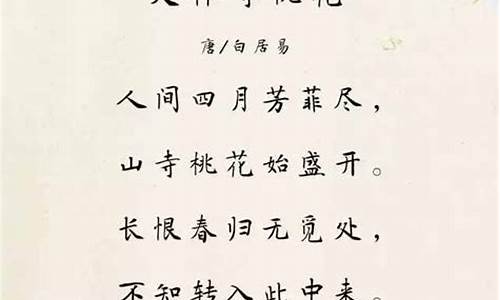 大林寺桃花
唐/白居易
人间四月芳菲尽，
山寺桃花始盛开。
长恨春归无觅处，
不知转入此中来。